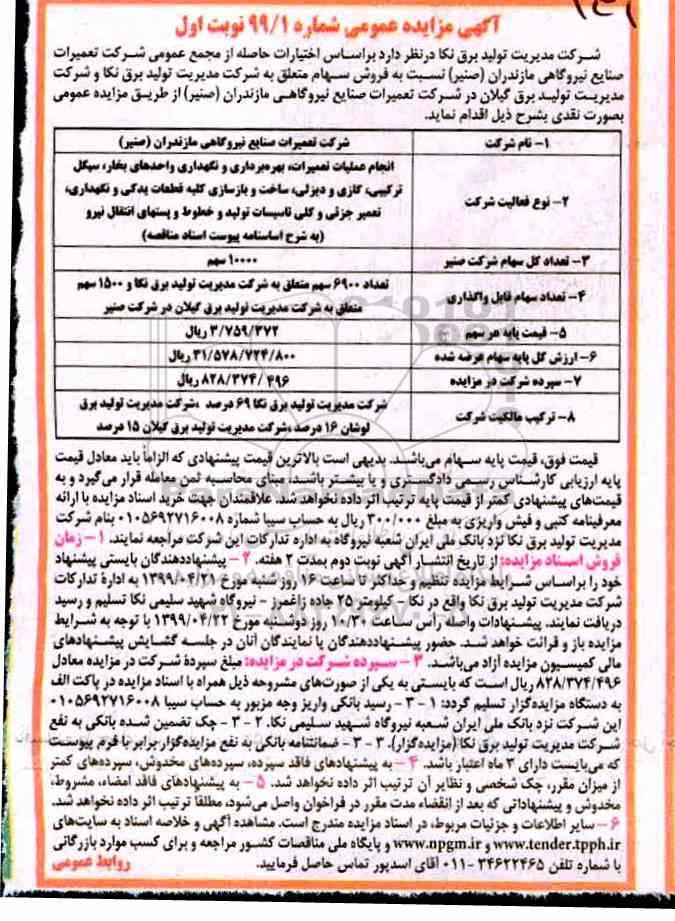 آگهی مزایده عمومی شماره ۹۹/۱ نوبت اول
شرکت مدیریت تولید برق نکا درنظر دارد براساس اختیارات حاصله از مجمع عمومی شرکت تعمیرات
صنایع نیروگاهی مازندران (صنیر) نسبت به فروش سهام متعلق به شرکت مدیریت تولید برق نکا و شرکت
مدیریت تولید برق گیلان در شرکت تعمیرات صنایع نیروگاهی مازندران (صنیر) از طریق مزایده عمومی
بصورت نقدی بشرح ذیل اقدام نماید.
۱- نام شرکت
شرکت تعمیرات صنایع نیروگاهی مازندران (صنیر)
۲- نوع فعالیت شرکت
انجام عملیات تعمیرات، بهره‌برداری و نگهداری واحدهای بخار، سیکل
ترکیبی، گازی و دیزلی، ساخت و بازسازی کلیه قطعات یدکی و نگهداری،
تعمیر جزئی و کلی تاسیسات تولید و خطوط و پستهای انتقال نیرو
(به شرح اساسنامه پیوست اسناد مناقصه)
۳- تعداد کل سهام شرکت صنیر
۱۰۰۰۰ سهم
۴- تعداد سهام قابل واگذاری
تعداد ۶۹۰۰ سهم متعلق به شرکت مدیریت تولید برق نکا و ۱۵۰۰ سهم
متعلق به شرکت مدیریت تولید برق گیلان در شرکت صنیر
۵- قیمت پایه هر سهم
۳/۷۵۹/۳۷۲ ریال
۶- ارزش کل پایه سهام عرضه شده
۳۱/۵۷۸/۷۲۴/۸۰۰ ریال
۷- سپرده شرکت در مزایده
۸۲۸/۳۷۴/۴۹۶ ریال
۸- ترکیب مالکیت شرکت
شرکت مدیریت تولید برق نکا ۶۹ درصد ،شرکت مدیریت تولید برق
لوشان ۱۶ درصد ،شرکت مدیریت تولید برق گیلان ۱۵ درصد
قیمت فوق، قیمت پایه سهام می‌باشد. بدیهی است بالاترین قیمت پیشنهادی که الزاماً باید معادل قیمت
پایه ارزیابی کارشناس رسمی دادگستری و یا بیشتر باشد، مبنای محاسبه ثمن معامله قرار می‌گیرد و به
قیمت‌های پیشنهادی کمتر از قیمت پایه ترتیب اثر داده نخواهد شد. علاقمندان جهت خرید اسناد مزایده با ارائه
معرفینامه کتبی و فیش واریزی به مبلغ ۳۰۰/۰۰۰ ریال به حساب سیبا شماره ۰۱۰۵۶۹۲۷۱۶۰۰۸ بنام شرکت
مدیریت تولید برق نکا نزد بانک ملی ایران شعبه نیروگاه به اداره تدارکات این شرکت مراجعه نمایند. ۱- زمان
فروش اسناد مزایده: از تاریخ انتشار آگهی نوبت دوم بمدت ۲ هفته. ۲- پیشنهاددهندگان بایستی پیشنهاد
خود را براساس شرایط مزایده تنظیم و حداکثر تا ساعت ۱۶ روز شنبه مورخ ۱۳۹۹/۰۴/۲۱ به ادارهٔ تدارکات
شرکت مدیریت تولید برق نکا واقع در نکا - کیلومتر ۲۵ جاده زاغمرز - نیروگاه شهید سلیمی نکا تسلیم و رسید
دریافت نمایند. پیشنهادات واصله رأس ساعت ۱۰/۳۰ روز دوشنبه مورخ ۱۳۹۹/۰۴/۲۲ با توجه به شرایط
مزایده باز و قرائت خواهد شد. حضور پیشنهاددهندگان یا نمایندگان آنان در جلسه گشایش پیشنهادهای
مالی کمیسیون مزایده آزاد می‌باشد. ۳- سپرده شرکت در مزایده: مبلغ سپردهٔ شرکت در مزایده معادل
۸۲۸/۳۷۴/۴۹۶ ریال است که بایستی به یکی از صورت‌های مشروحه ذیل همراه با اسناد مزایده در پاکت الف
به دستگاه مزایده‌گزار تسلیم گردد: ۱-۳- رسید بانکی واریز وجه مزبور به حساب سیبا ۰۱۰۵۶۹۲۷۱۶۰۰۸
این شرکت نزد بانک ملی ایران شعبه نیروگاه شهید سلیمی نکا. ۲-۳- چک تضمین شده بانکی به نفع
شرکت مدیریت تولید برق نکا (مزایده‌گزار). ۳-۳- ضمانتنامه بانکی به نفع مزایده‌گزار برابر با فرم پیوست
که می‌بایست دارای ۳ ماه اعتبار باشد. ۴- به پیشنهادهای فاقد سپرده، سپرده‌های مخدوش، سپرده‌های کمتر
از میزان مقرر، چک شخصی و نظایر آن ترتیب اثر داده نخواهد شد. ۵- به پیشنهادهای فاقد امضاء، مشروط،
مخدوش و پیشنهاداتی که بعد از انقضاء مدت مقرر در فراخوان واصل می‌شود، مطلقاً ترتیب اثر داده نخواهد شد.
۶- سایر اطلاعات و جزئیات مربوط، در اسناد مزایده مندرج است. مشاهده آگهی و خلاصه اسناد به سایت‌های
www.tender.tpph.ir و www.npgm.ir و پایگاه ملی مناقصات کشور مراجعه و برای کسب موارد بازرگانی
با شماره تلفن ۳۴۶۲۲۴۶۵-۰۱۱ آقای اسدپور تماس حاصل فرمایید.
روابط عمومی